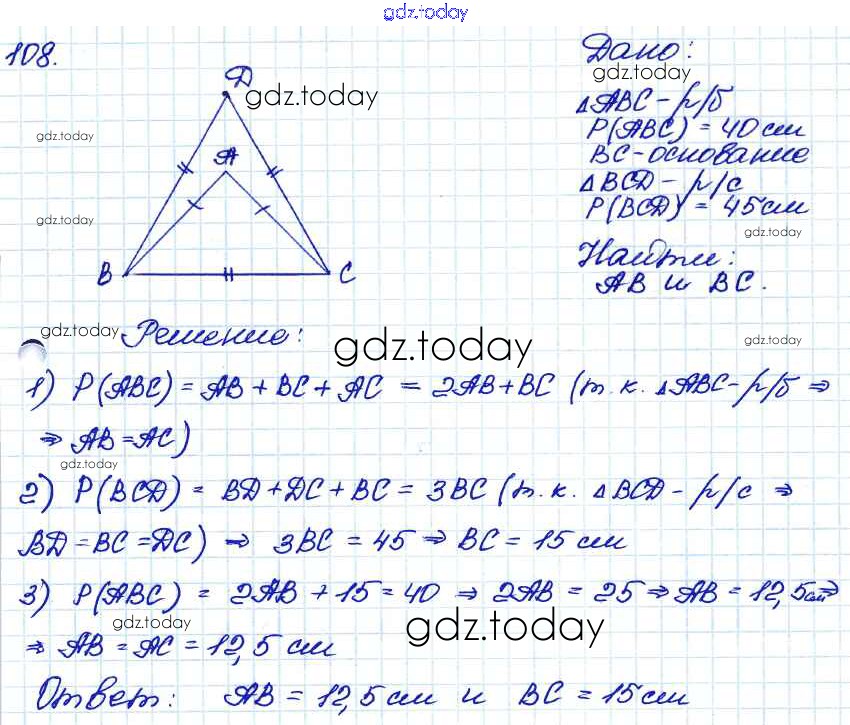 gdz.today
108.
D
gdz.today
A
B
C
gdz.today
gdz.today
Дано:
gdz.today
△ABC - р/б
P(ABC) = 40 см
BC - основание
△BCD - р/с
P(BCD) = 45 см
gdz.today
Найти:
AB и BC.
gdz.today
Решение:
gdz.today
gdz.today
1) P(ABC) = AB + BC + AC = 2AB + BC (т.к. △ABC - р/б ⇒
⇒ AB = AC)
gdz.today
2) P(BCD) = BD + DC + BC = 3BC (т.к. △BCD - р/с ⇒
BD = BC = DC) ⇒ 3BC = 45 ⇒ BC = 15 см
3) P(ABC) = 2AB + 15 = 40 ⇒ 2AB = 25 ⇒ AB = 12,5 см ⇒
gdz.today
gdz.today
⇒ AB = AC = 12,5 см
Ответ: AB = 12,5 см и BC = 15 см